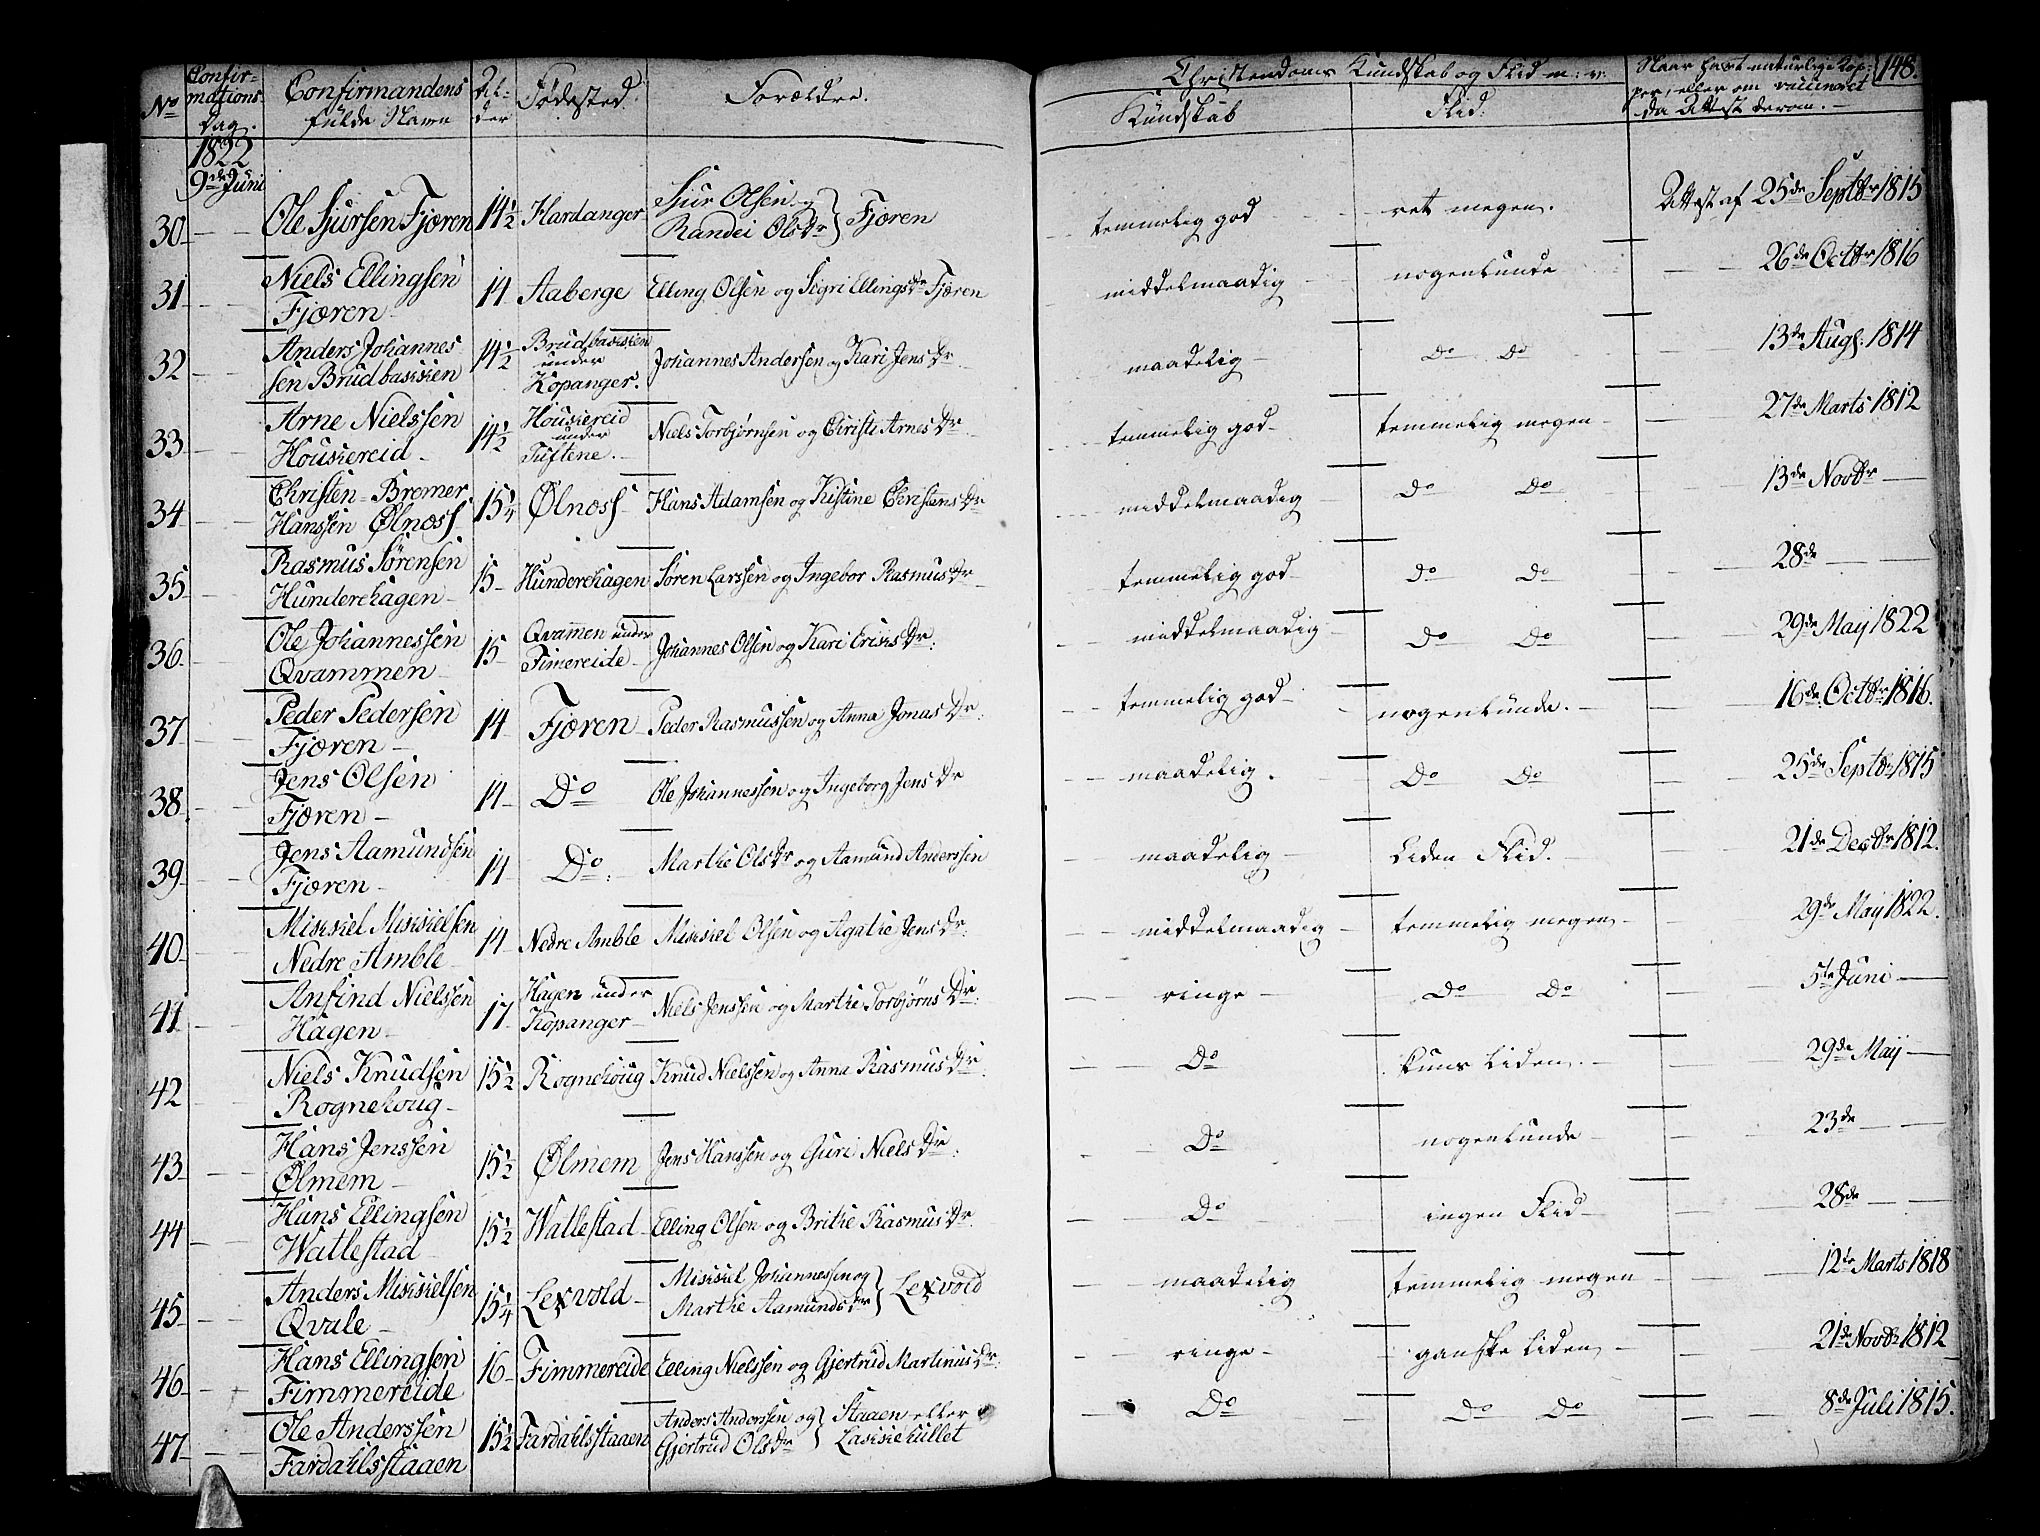 Christendoms Kundskab og Flid m: v:
Naar havt naturlige Kop-
per, eller om vaccineret
da Attest derom. —
148.
No
Confir-
mations
Dag.
Confirmandens
fulde Navn
Al-
der
Fødested
Forældre.
Kundskab
Flid:
1822
9de Juni
30 Ole Sjursen Fjæren 14½ Hardanger Sjur Olsen og Randei Olsdr } Fjæren temmelig god ret megen. Attest af 25de Septbr 1815
31 Niels Ellingsen
Fjæren 14 Aaberge Elling Olsen og Sigri Ellingsdr Fjæren middelmaadig nogenlunde 26de Octbr 1816
32 Anders Johannes
sen Brudbakken 14½ Brudbakken
under
Kopanger. Johannes Andersen og Kari Jensdr maadelig Do Do 13de Aug. 1814
33 Arne Nielssen
Houkereid 14½ Houkereid
under
Tuftene. Niels Torbjørnsen og Christi Arnesdr temmelig god temmelig megen 27de Marts 1812
34 Christen Bremer
Hanssen Ølnæss 15¼ Ølnæss Hans Adamsen og Kistine Christensdr middelmaadig Do Do 13de Novbr
35 Rasmus Sørensen
Hunderehagen 15 Hunderehagen Søren Larssen og Ingebor Rasmusdr temmelig god Do Do 28de
36 Ole Johannessen
Qvammen 15 Qvammen under
Fimereide Johannes Olsen og Kari Eriksdr: middelmaadig Do Do 29de Maij 1822
37 Peder Pedersen
Fjæren 14 Fjæren Peder Rasmussen og Anna Jonasdr: temmelig god nogenlunde. 16de Octbr 1816.
38 Jens Olsen
Fjæren 14 Do Ole Johannessen og Ingeborg Jensdr maadelig. Do Do 25de Septbr 1815
39 Jens Aamundsen
Fjæren 14 Do: Marthe Olsdr og Aamund Anderssen maadelig Liden Flid. 21de Decbr 1812.
40 Mikkel Mikkelsen
Nedre Amble 14 Nedre Amble Mikkel Olsen og Agathe Jensdr: middelmaadig temmelig megen 29de Maij 1822.
41 Anfind Nielssen
Hagen 17 Hagen under
Kopanger Niels Jenssen og Marthe Torbjørnsdr: ringe Do Do 5te Juni
42 Niels Knudsen
Rognehoug 15½ Rognehoug Knud Nielssen og Anna Rasmusdr Do kuns liden. 29de Maij
43 Hans Jenssen
Ølmem 15½ Ølmem Jens Hanssen og Guri Nielsdr: Do nogenlunde 23de
44 Hans Ellingsen
Wallestad 15½ Wallestad Elling Olsen og Brithe Rasmusdr Do ingen Flid 28de
45 Anders Mikkelsen
Qvale 15¼ Lexvold Mikkel Johannessen og
Marthe Aamundsdr } Lexvold maadelig temmelig megen 12te Marts 1818
46 Hans Ellingsen
Fimmereide 16 Fimmereide Elling Nielssen og Gjertrud Martinusdr: ringe ganske liden 21de Novbr 1812
47 Ole Anderssen
Fardahlsstaaen 15½ Fardahlsstaaen Anders Anderssen og
Gjertrud Olsdr } Staaen eller
Lakkehullet Do Do Do 8de Juli 1815.